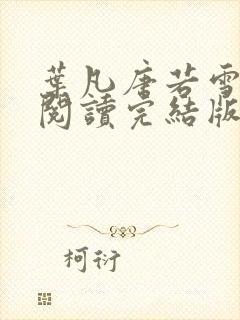 葉凡唐若雪
閱讀完結版
柯衍